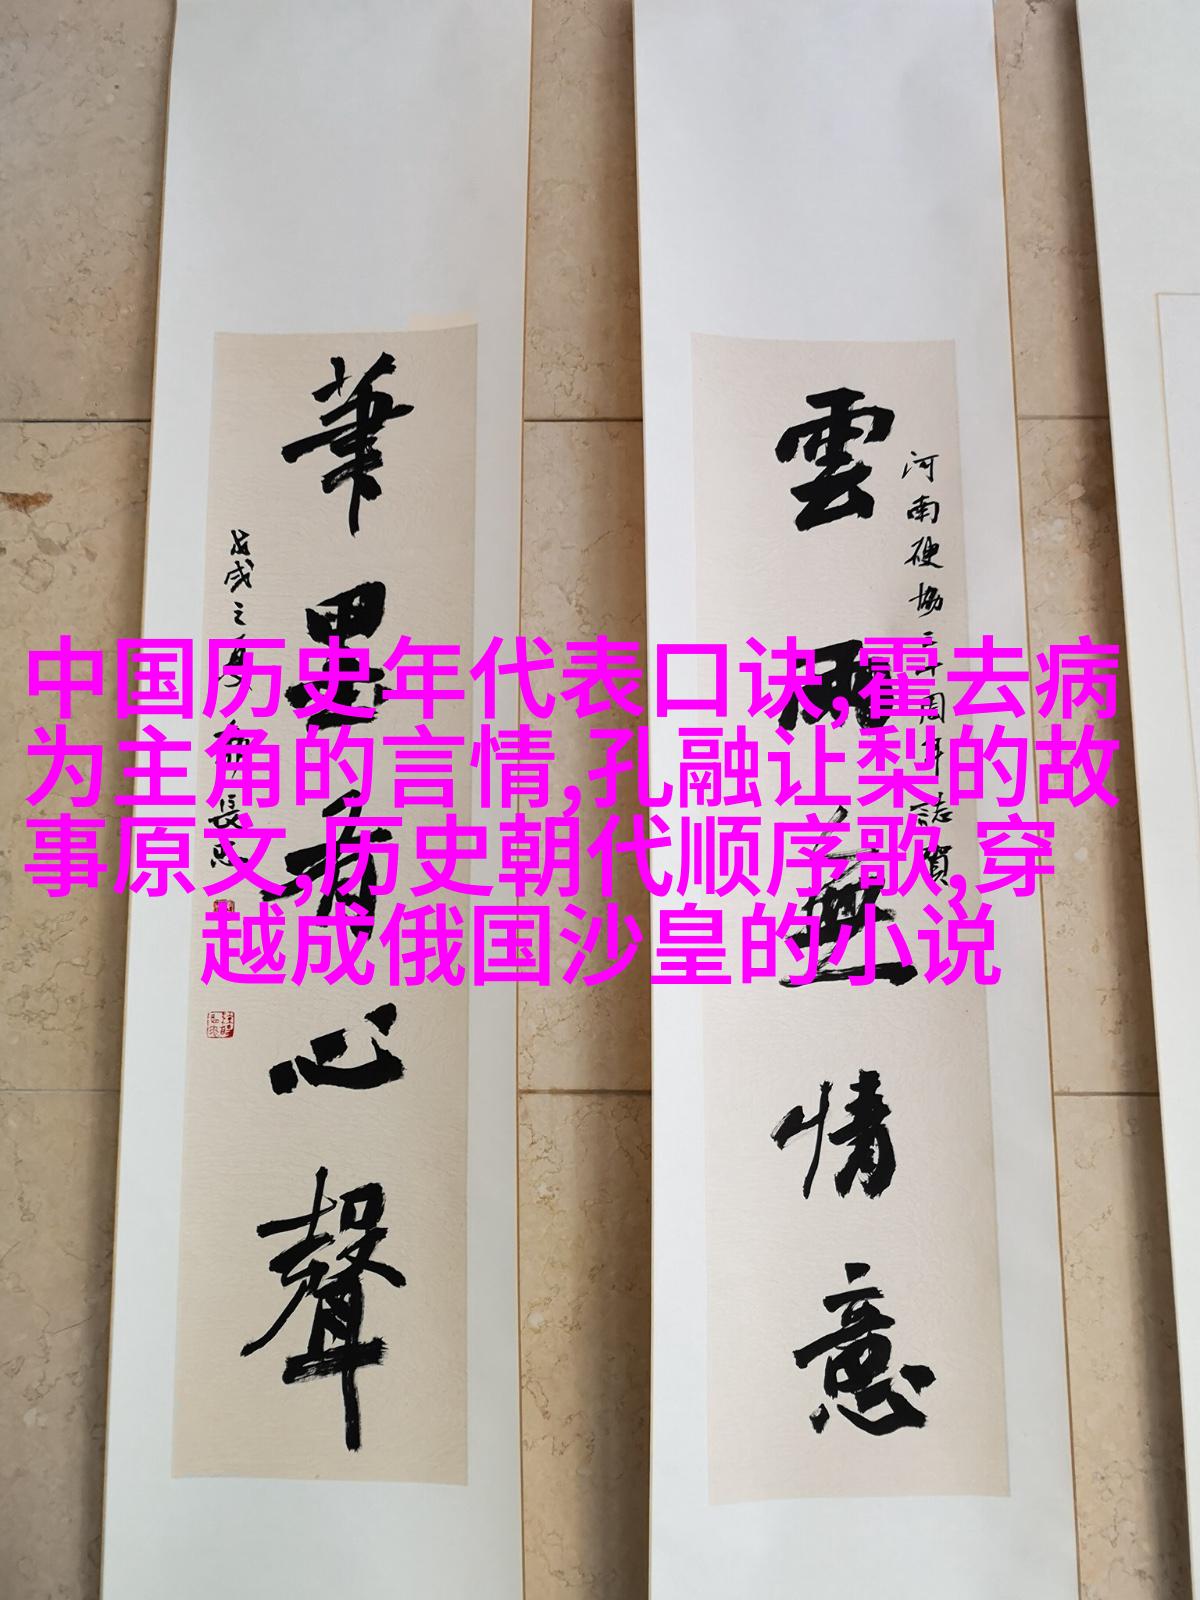 中国历史年代表口诀,霍去病
为主角的言情,孔融让梨的故
事原文,历史朝代顺序歌,穿
越成俄国沙皇的小说
雲雨無情意
河南硬協三十周年誌賀
筆墨有心聲
戊戌之夏